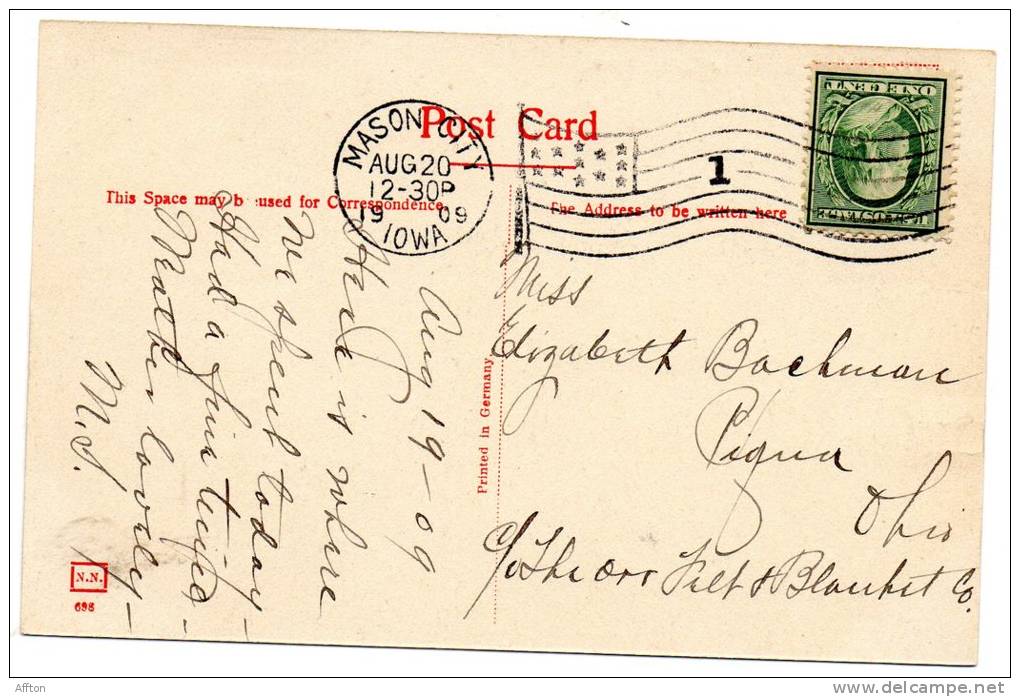 Post Card
MASON CITY
AUG 20
12-30P
19 09
IOWA
1
ONE CENT
This Space may b used for Correspondence
The Address to be written here
Aug 19 - 09
Here is where
we spent today -
Had a fine time -
Weather lovely -
M.S.
Printed in Germany
Miss
Elizabeth Bachman
Piqua
Ohio
c/o The Orr Felt & Blanket Co.
N.N.
698
Affton
delcampe.net